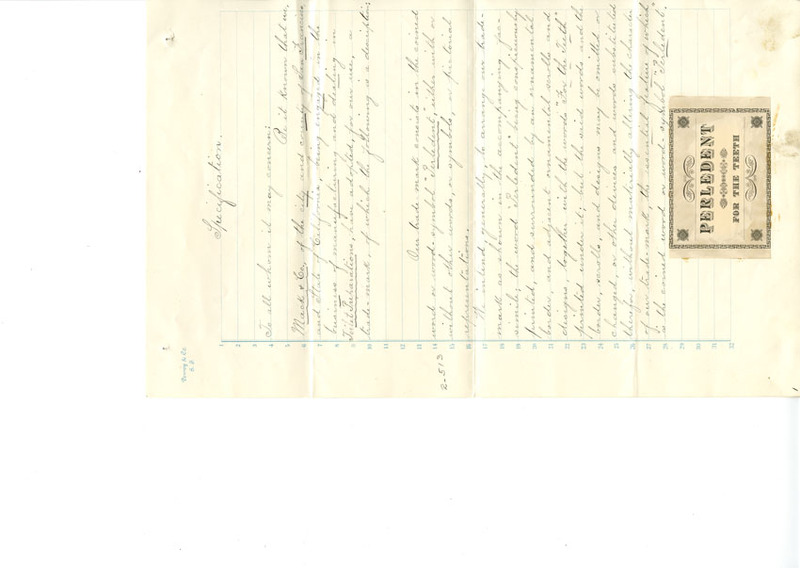 Specification.
To all whom it may concern:
Be it known that we,
Mack & Co., of the city and county of San Francisco
and State of California, being engaged in the
business of manufacturing and dealing in
Toilet Preparations, have adopted, for our use, a
trade-mark, of which the following is a description:
Our trade mark consists in the coined
word or word-symbol "Perledent", either with or
without other words, or symbols, or pictorial
representations.
We intend, generally, to arrange our trade-
mark as shown in the accompanying fac-
simile, the word "Perledent" being conspicuously
printed, and surrounded by an ornamental
border, and adjacent ornamental scrolls and
designs, together with the words "For the Teeth"
printed under it; but the said words and the
border, scrolls, and designs may be omitted or
changed, or other devices and words substituted
therefor, without materially altering the character
of our trade-mark, the essential feature of which
is the coined word or word-symbol "Perledent."
PERLEDENT
FOR THE TEETH
1
2
3
4
5
6
7
8
9
10
11
12
13
14
15
16
17
18
19
20
21
22
23
24
25
26
27
28
29
30
31
32
2-513